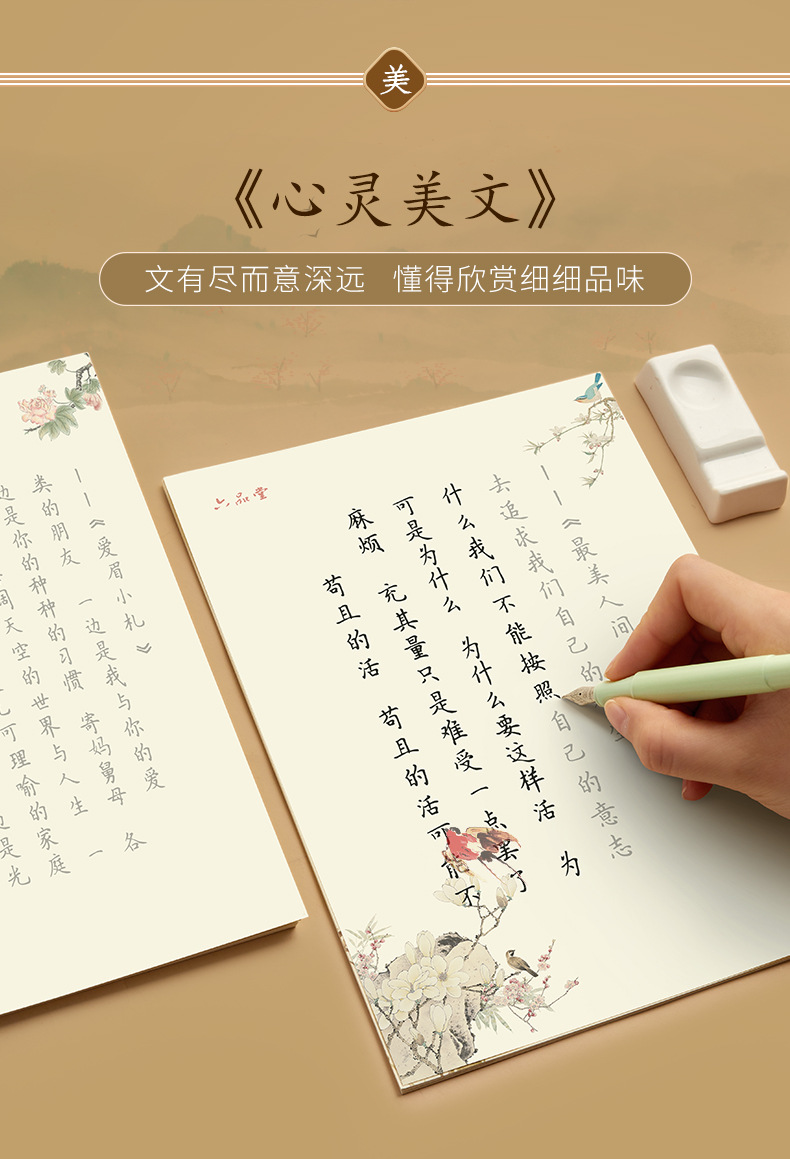 美
《心灵美文》
文有尽而意深远 懂得欣赏细细品味
边是光
可理喻的家庭
周天空的世界与人生 一
边是你的种种的习惯 寄妈舅母 各
类的朋友 一边是我与你的爱
——《爱眉小札》
六品堂
苟且的活 苟且的活可能不
麻烦 充其量只是难受一点罢了
可是为什么 为什么要这样活 为
什么我们不能按照自己的意志
去追求我们自己的
——《最美人间